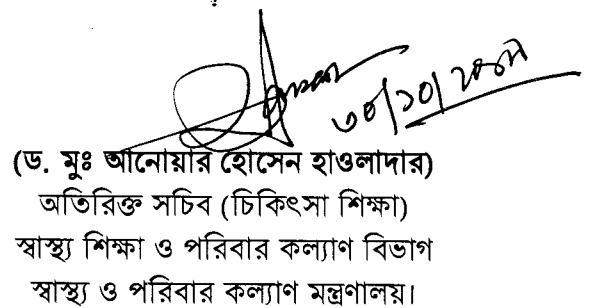 ৩০/১০/২০১৭
(ড. মুঃ আনোয়ার হোসেন হাওলাদার)
অতিরিক্ত সচিব (চিকিৎসা শিক্ষা)
স্বাস্থ্য শিক্ষা ও পরিবার কল্যাণ বিভাগ
স্বাস্থ্য ও পরিবার কল্যাণ মন্ত্রণালয়।